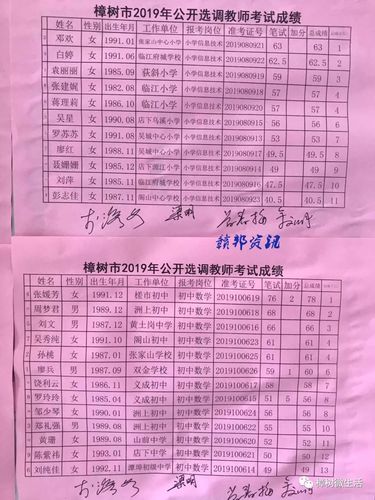 樟树市2019年公开选调教师考试成绩
姓名 性别 出生年月 工作单位 报考岗位 准考证号 笔试 加分 总成绩
邓欢 女 1991.01 张家山中心小学 小学信息技术 2019080921 63 63 1
白婷 女 1991.06 临江府城学校 小学信息技术 2019080922 62.5 62.5 2
袁丽丽 女 1985.09 荻斜小学 小学信息技术 2019080915 59 59 3
张建妮 女 1982.08 临江小学 小学信息技术 2019080918 57 57 4
蒋理莉 女 1986.10 临江小学 小学信息技术 2019080920 57 57 4
吴星 女 1990.08 店下乌溪小学 小学信息技术 2019080912 56 56 6
罗苏苏 女 1991.08 吴城中心小学 小学信息技术 2019080913 53 53 7
廖红 女 1988.11 吴城中心小学 小学信息技术 2019080923 49.5 49.5 8
聂姗姗 女 1985.12 店下源江小学 小学信息技术 2019080914 49 49 9
刘萍 女 1985.11 临江府城学校 小学信息技术 2019080916 47.5 47.5 10
彭志佳 女 1987.11 阁山中心学校 小学信息技术 2019080919 40.5 40.5 11
赣邦资讯
樟树市2019年公开选调教师考试成绩
姓名 性别 出生年月 工作单位 报考岗位 准考证号 笔试 加分 总成绩
张媛芳 女 1991.12 槎市初中 初中数学 2019100619 76 2 78 1
周梦君 男 1989.12 洲上初中 初中数学 2019100618 68 68 2
刘文 男 1987.12 黄土岗中学 初中数学 2019100616 66 66 3
吴秀纯 女 1991.10 阁山初中 初中数学 2019100623 61 61 4
孙桃 女 1987.01 张家山学校 初中数学 2019100621 61 61 4
廖兵 男 1987.09 双金学校 初中数学 2019100626 59 1 60 6
饶利云 女 1986.11 义成初中 初中数学 2019100617 58 58 7
罗玲玲 女 1985.04 义成初中 初中数学 2019100615 51 5 56 8
邹少琴 女 1990.01 洲上初中 初中数学 2019100624 56 56 8
郑礼强 男 1989.08 洲上初中 初中数学 2019100625 55 55 10
黄珊 女 1989.08 山前初中 初中数学 2019100622 52 52 11
陈紫祎 女 1993.01 店下中学 初中数学 2019100620 51 51 12
刘纯佳 女 1992.11 潭埠初级中学 初中数学 2019100614 49 49 13
樟树微生活